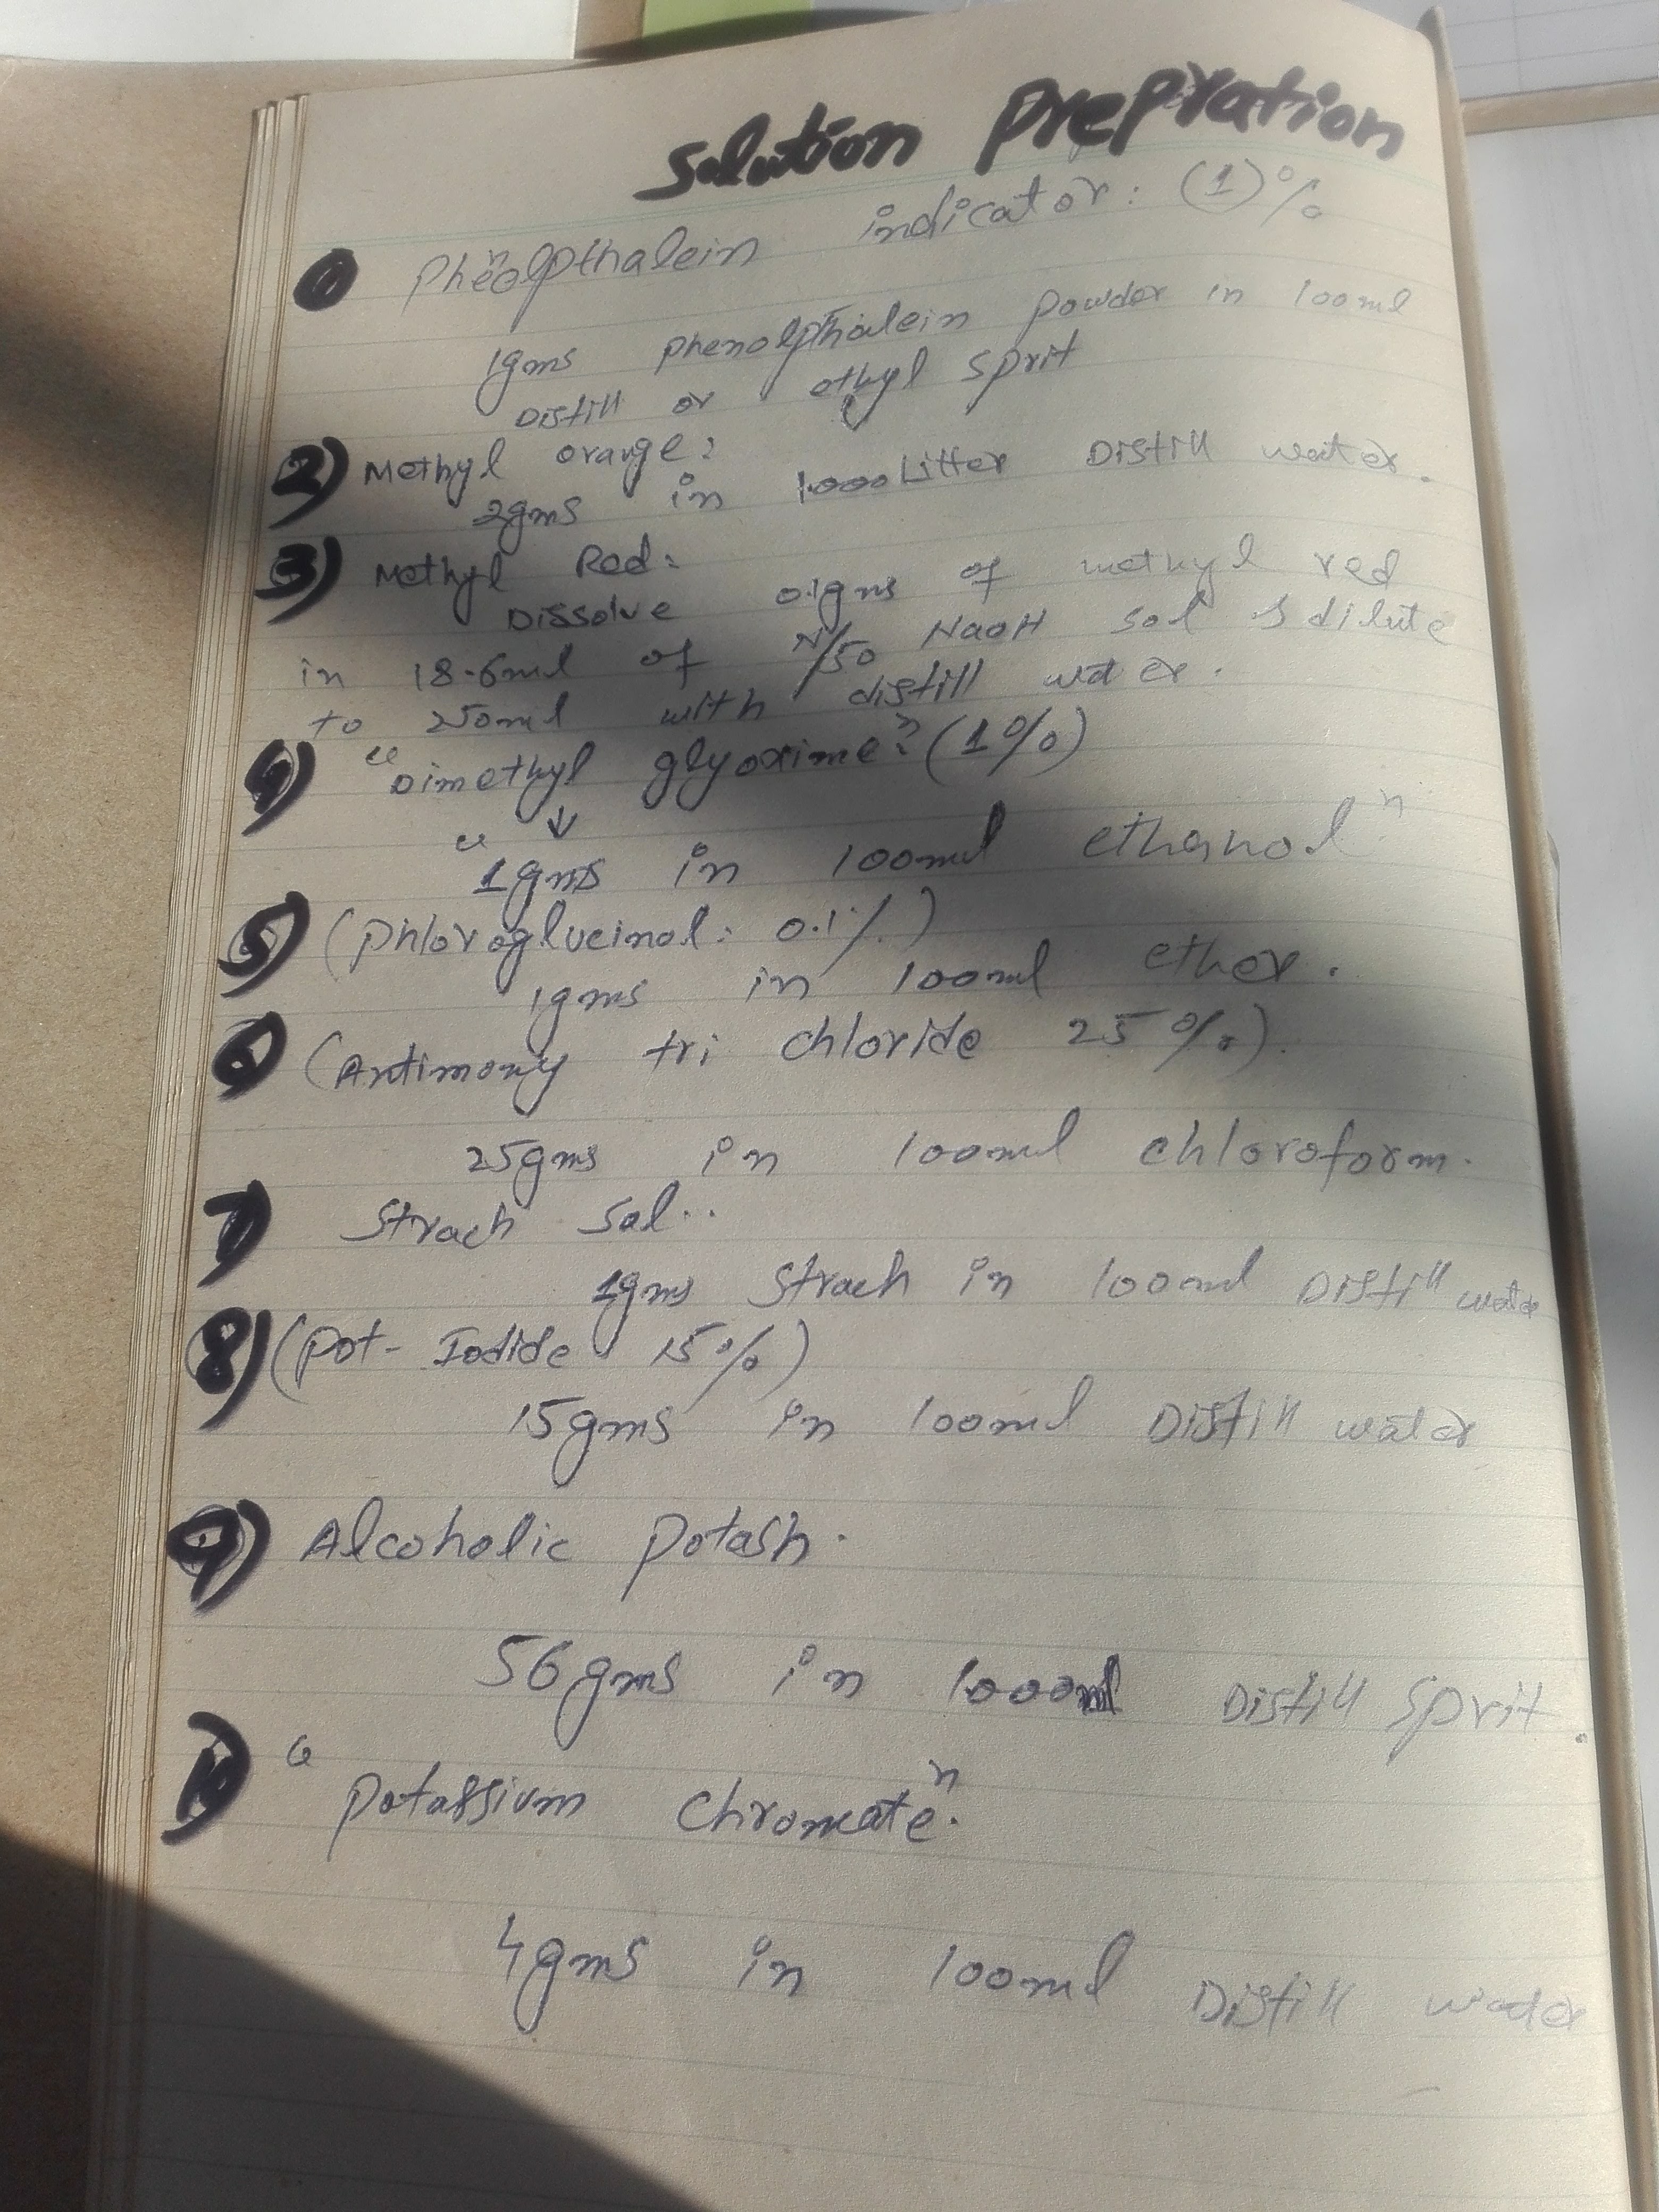 Solution Prepration
① Phenolpthalein indicator: (1)%
1gms phenolpthalein powder in 100ml
Distill or ethyl sprit
2) Methyl orange:
2gms in 1000 Litter Distill water.
3) Methyl Red:
Dissolve 0.1gms of methyl red
in 18.6ml of N/50 NaOH sol & dilute
to 250ml with distill water.
4) "Dimethyl glyoxime" (1%)
↓
"1gms in 100ml ethanol"
5) (Phloroglucinol: 0.1%)
1gms in 100ml ether.
6 (Antimony tri chloride 25%)
25gms in 100ml chloroform.
7) Strach Sol..
1gms Strach in 100ml Distill water
8) (Pot- Iodide 15%)
15gms in 100ml Distill water
9) Alcoholic Potash.
56gms in 1000ml Distill Sprit.
10) "Potassium Chromate".
4gms in 100ml Distill water